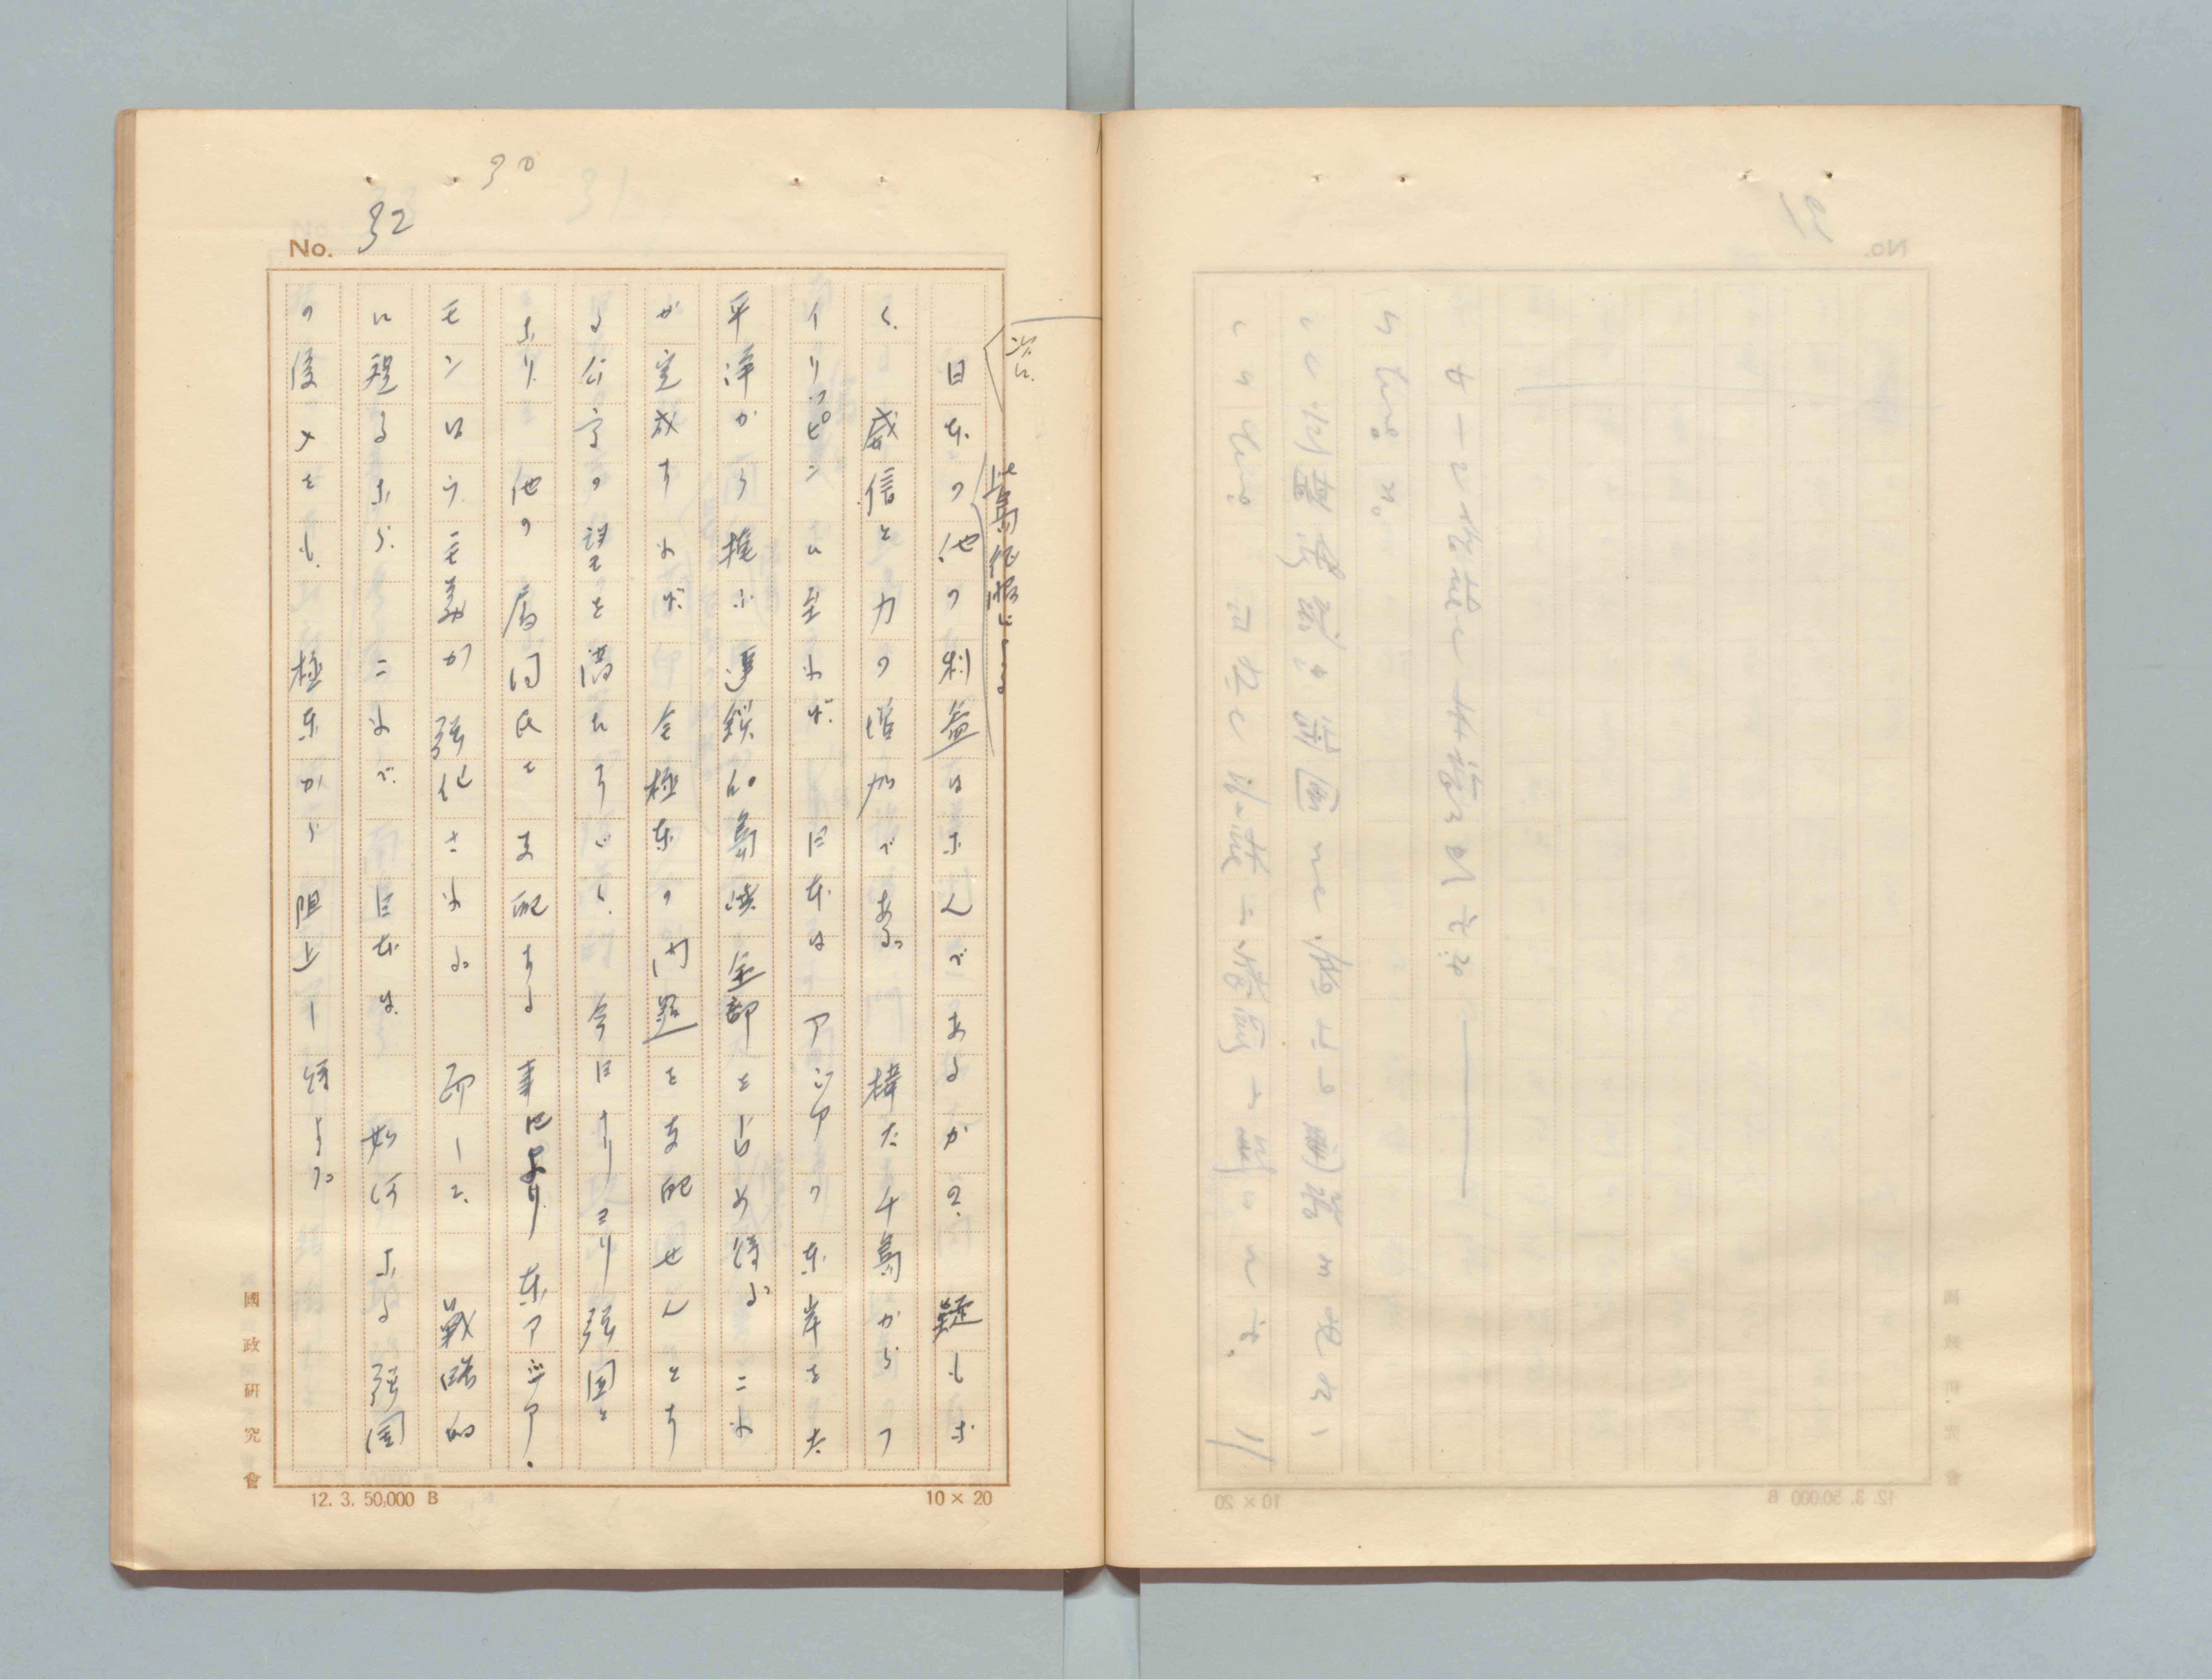 30
32
No.
次に
此島獲得による
日本の他の利益はなんであるかの、疑もな
く、威信と力の増加である。樺太千島からフ
イリッピンに至れば、日本はアジアの東岸を太
平洋から掩ふ連鎖の島嶼全部を占め得る。これ
が完成すれば、全極東の問題を支配せんとす
る公言の望を満たすべく、今日よりヨリ強国と
なり、他の属国民を支配する事により東アジア・
モンロウ主義が強化される。而して、戦略的
に観るなら、これで日本は、如何なる強国
の侵入をも、極東から阻止し得よう。
國政研究會
12. 3. 50,000 B
10×20